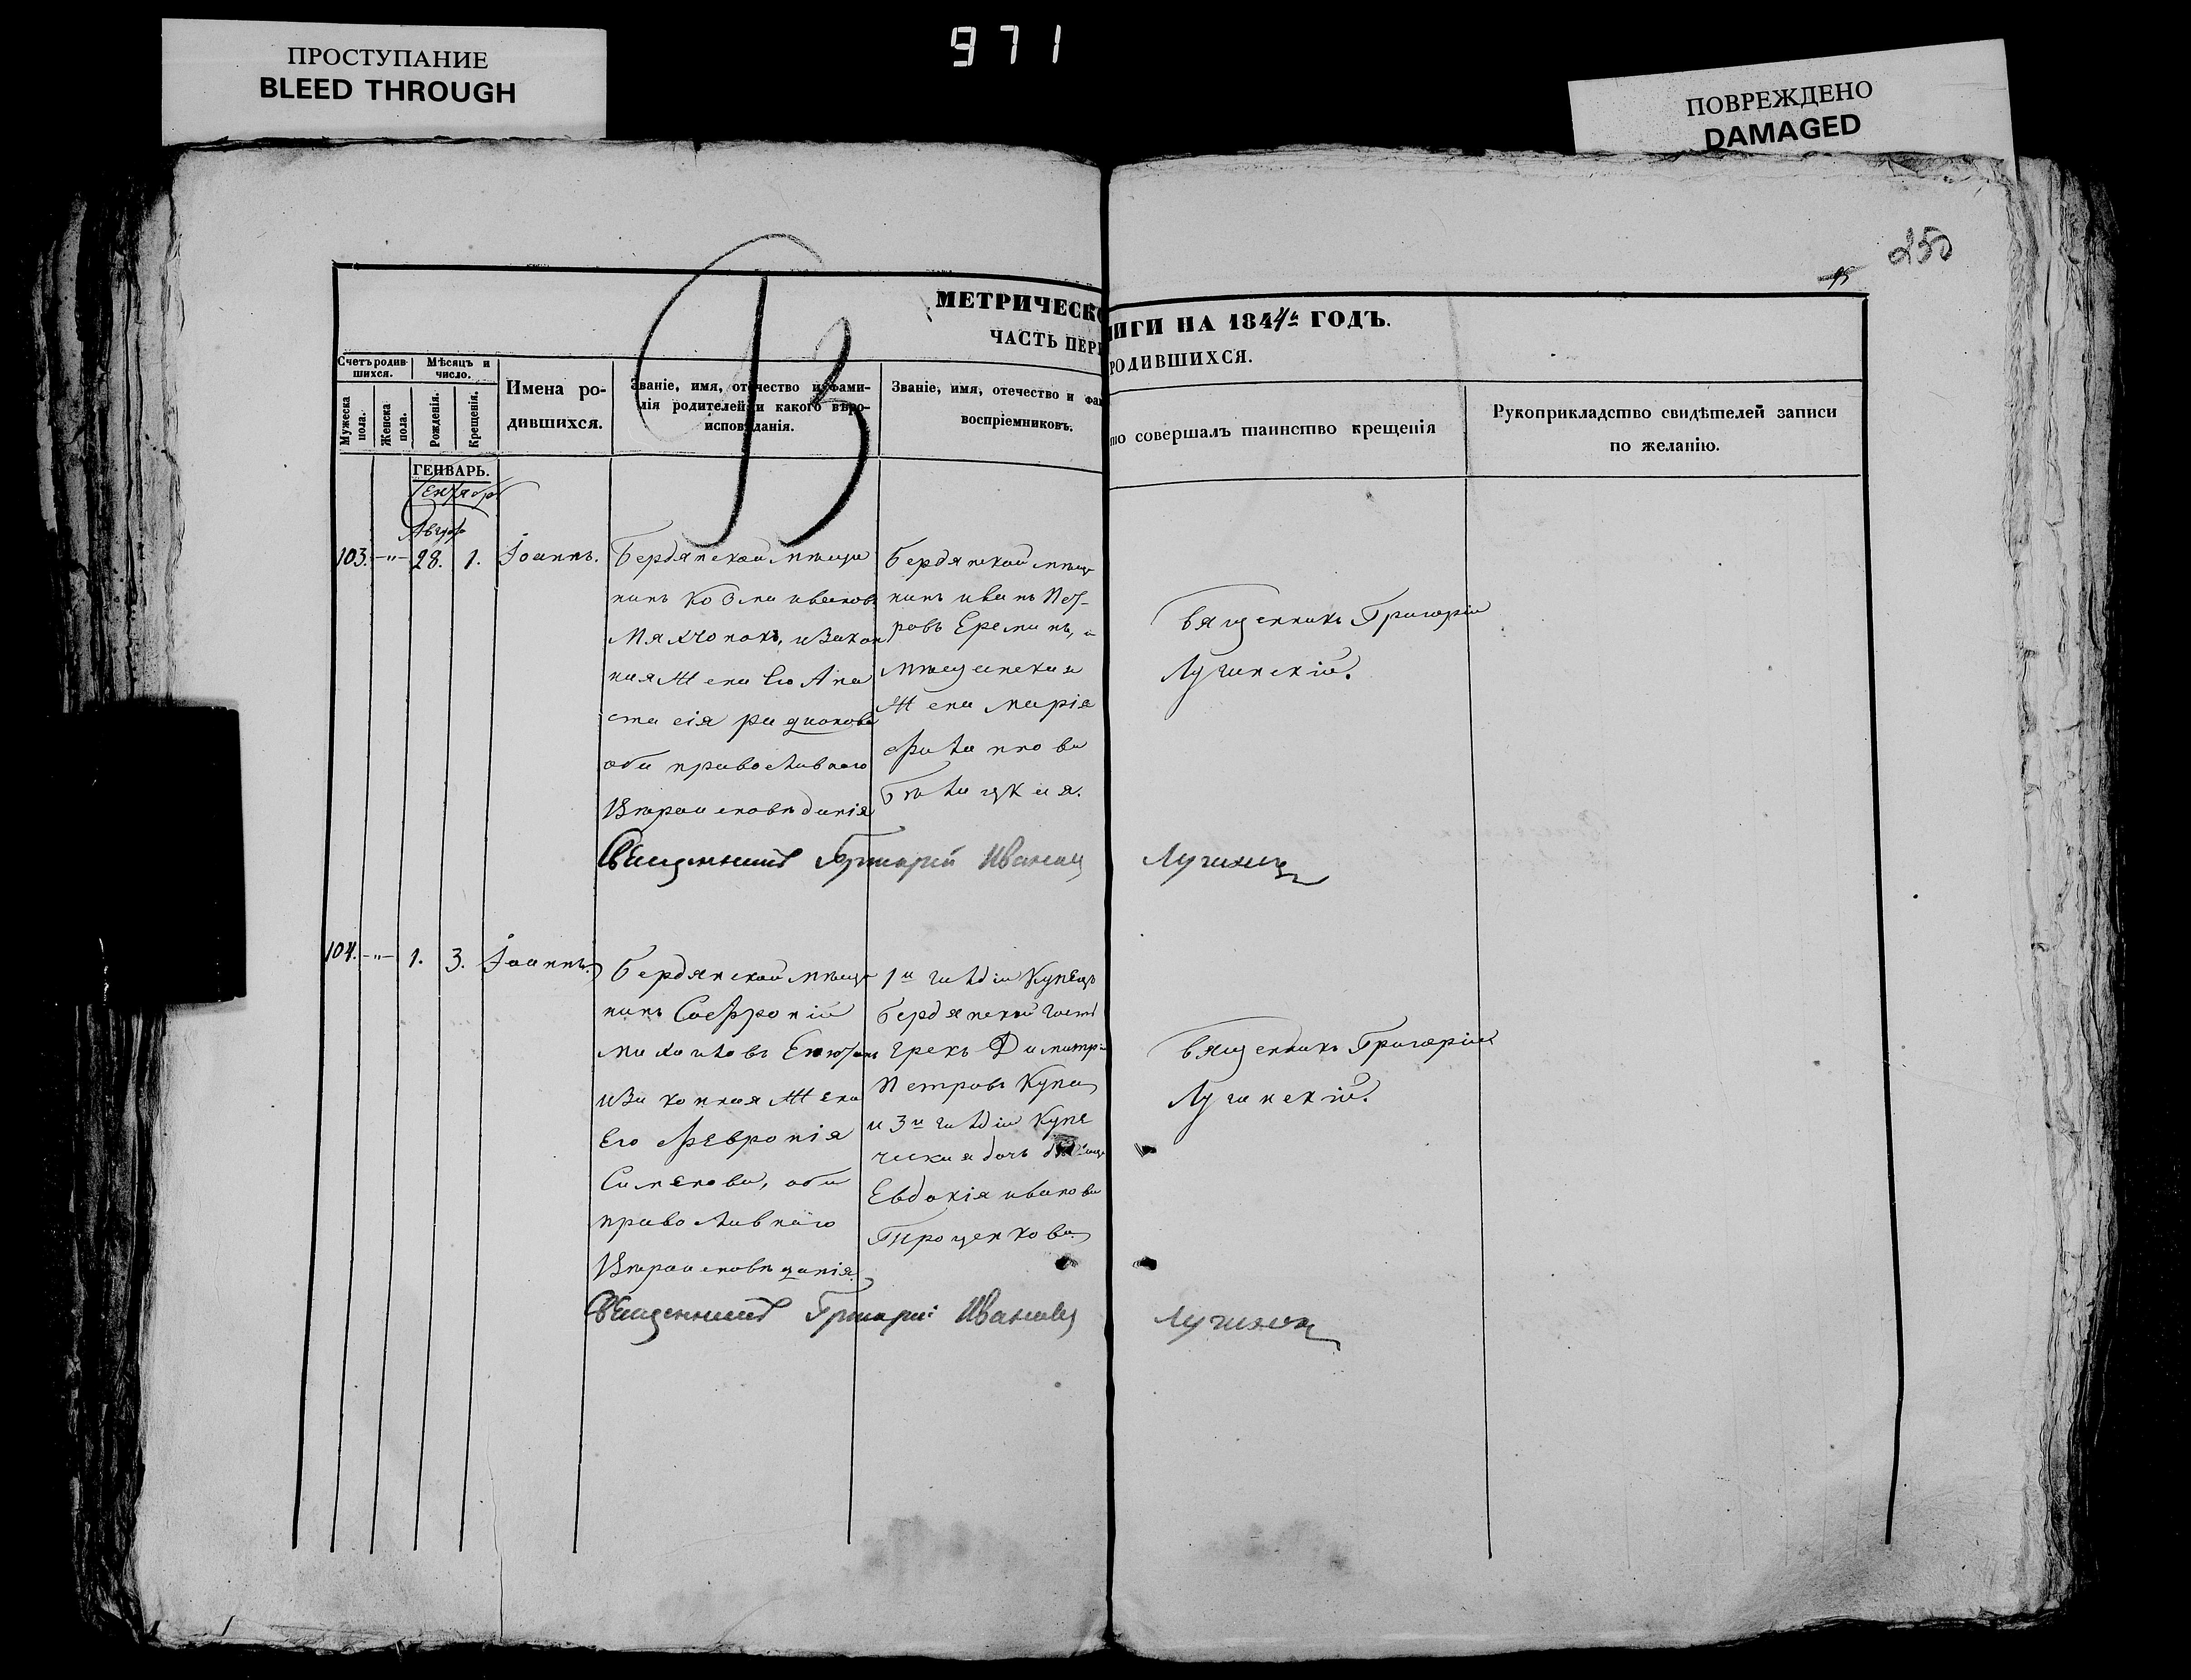 ПРОСТУПАНИЕ
BLEED THROUGH
971
ПОВРЕЖДЕНО
DAMAGED
250
МЕТРИЧЕСКО
ИГИ НА 1844 ГОДЪ.
ЧАСТЬ ПЕР
РОДИВШИХСЯ.
Счетъ родив-
шихся.
Мѣсяцъ и
число.
Мужеска
пола.
Женска
пола.
Рожденія.
Крещенія.
Имена ро-
дившихся.
Званіе, имя, отчество и фами-
лія родителей и какого вѣро-
исповѣданія.
Званіе, имя, отечество и фа
воспріемниковъ.
то совершалъ таинство крещенія
Рукоприкладство свидѣтелей записи
по желанію.
ГЕНВАРЬ.
103. -"- 28. 1. Іоаннъ.
Бердянской мѣща
нинъ Козма Ивановъ
и Закон
ная Жена Его Ана
стасія
оба православнаго
Вѣроисповѣданія
Бердянской мѣща
нинъ Иванъ Пет-
ровъ Ереминъ, и
мѣщанская
Жена Марія
Филипова
Священникъ Григорій
Лучинскій.
Священникъ Григорій Иванов Лучинск
104. -"- 1. 3. Іоаннъ
Бердянской мѣща
нинъ Софроній
Михаиловъ
и Законная Жена
Его Февронія
Симонова, оба
православнаго
Вѣроисповѣданія.
1й гилдіи Купецъ
Бердянской
Грекъ Димитрі
Петровъ Купа
и 3й гилдіи Купе
ческая дочь
Евдокія Иванова
Проценкова
Священникъ Григорій
Лучинскій.
Священникъ Григорі: Иванов Лучинск